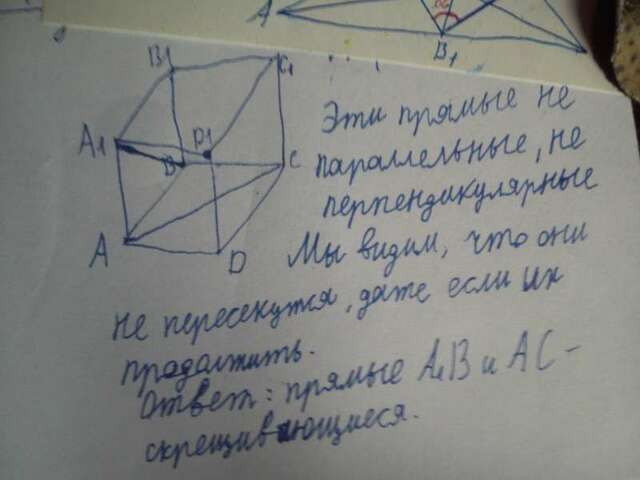 A
B1
B1
C1
A1
D1
B
C
A
D
Эти прямые не
параллельные, не
перпендикулярные
Мы видим, что они
не пересекутся, даже если их
продолжить.
Ответ: прямые A1B и AC -
скрещивающиеся.